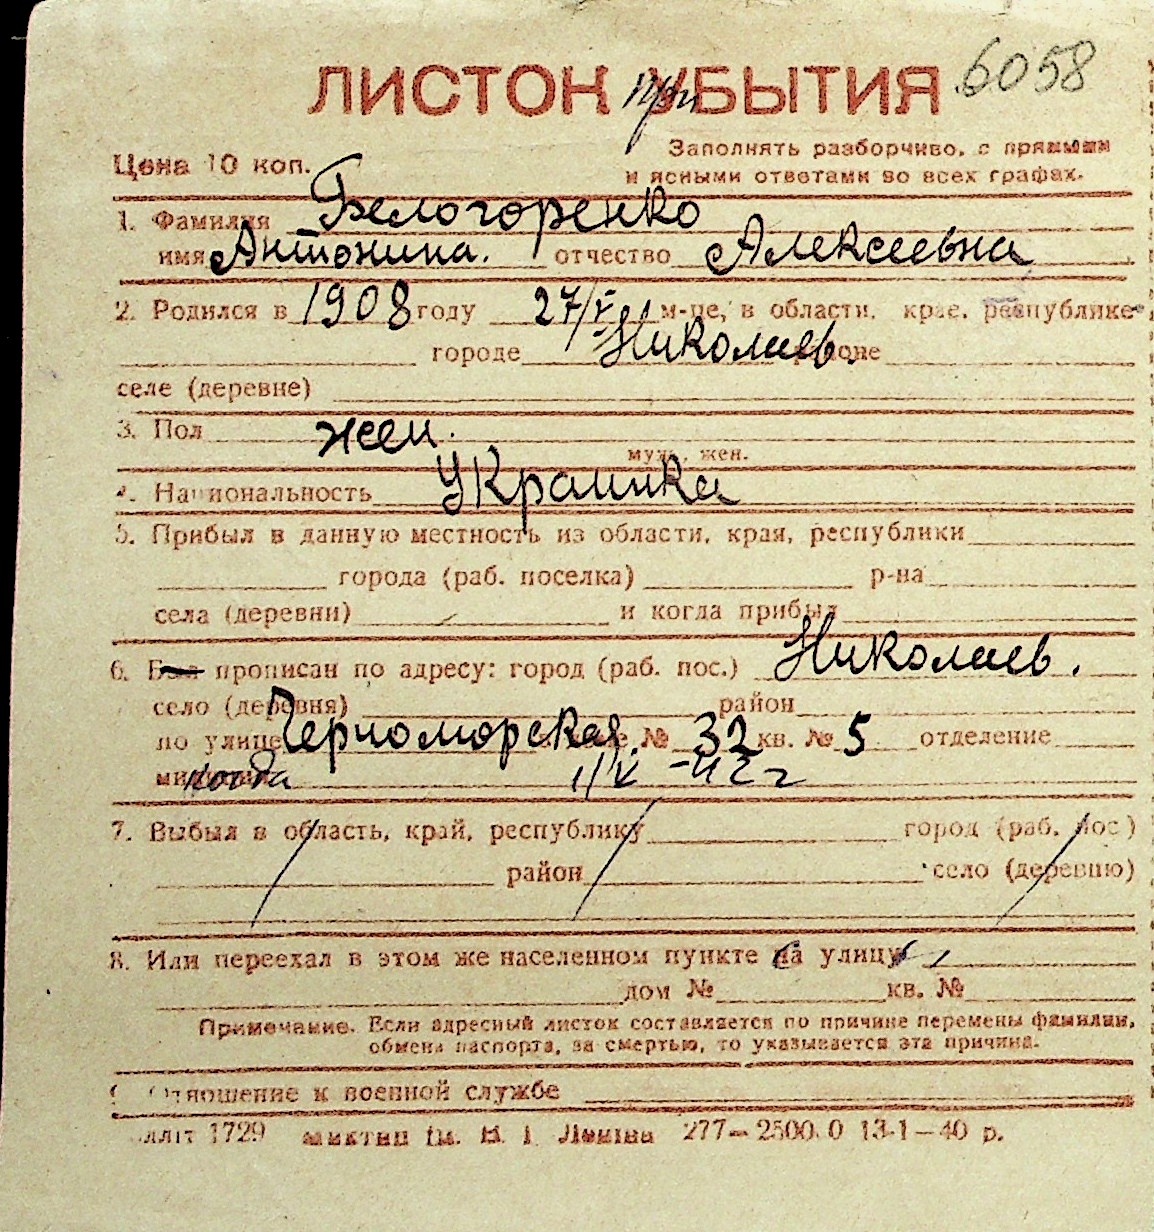 6058
ЛИСТОК прибытия
Цена 10 коп.
Заполнять разборчиво, с прямыми
и ясными ответами во всех графах.
1. Фамилия Белогоренко
имя Антонина. отчество Алексеевна
2. Родился в 1908 году 27/V м-це, в области, крае, республике
городе Николаев. районе
селе (деревне)
3. Пол жен.
муж., жен.
4. Национальность Украинка
5. Прибыл в данную местность из области, края, республики
города (раб. поселка) р-на
села (деревни) и когда прибыл
6. Был прописан по адресу: город (раб. пос.) Николаев.
село (деревня) район
по улице Черноморская. № 32 кв. № 5 отделение
когда 1/V-42 г
7. Выбыл в область, край, республику город (раб. пос.)
район село (деревню)
8. Или переехал в этом же населенном пункте на улицу
дом № кв. №
Примечание. Если адресный листок составляется по причине перемены фамилии,
обмена паспорта, за смертью, то указывается эта причина.
9. Отношение к военной службе
1729 277—2500.0 13-1—40 р.